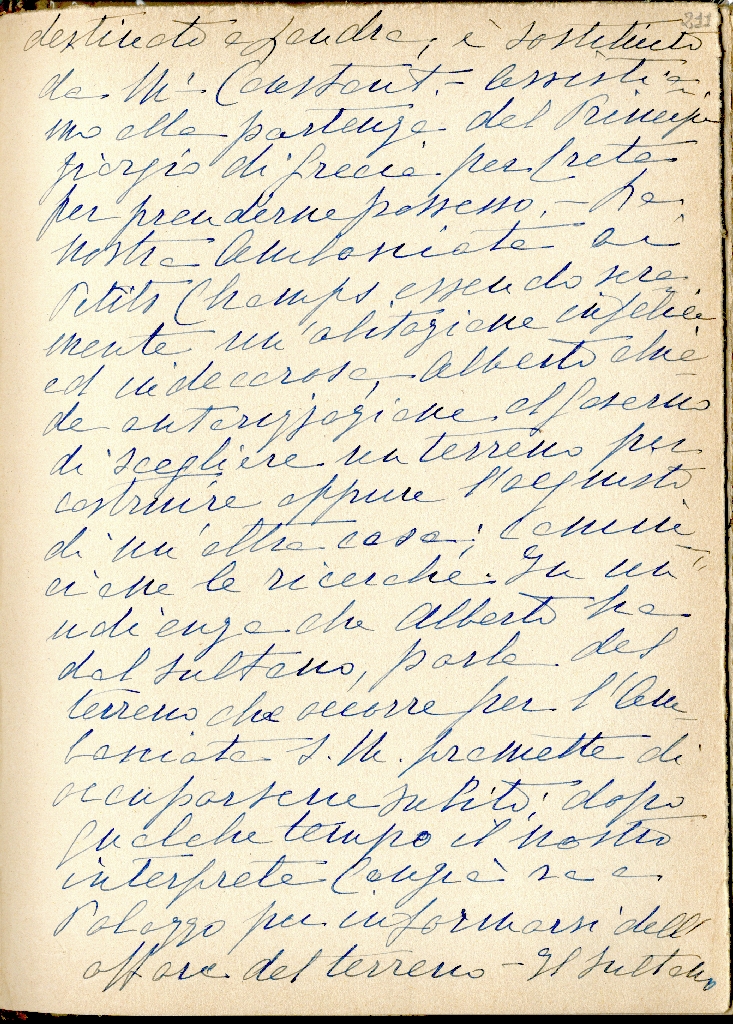 211
destinato a Londra, è sostituito
da Mr Constant. - Assistia-
mo alla partenza del Principe
Giorgio di Grecia per Creta
per prenderne possesso. - La
nostra Ambasciata ai
Petits Champs essendo vera
mente un'abitazione infelice
ed indecorosa, Alberto chie-
de autorizzazione al Governo
di scegliere un terreno per
costruire oppure l'acquisto
di un'altra casa; comin-
ciano le ricerche. In un
udienza che Alberto ha
dal Sultano, parla del
terreno che occorre per l'Am-
basciata S. M. promette di
occuparsene subito; dopo
qualche tempo il nostro
interprete Cangià va a
Palazzo per informarsi dell'
affare del terreno - Il Sultano